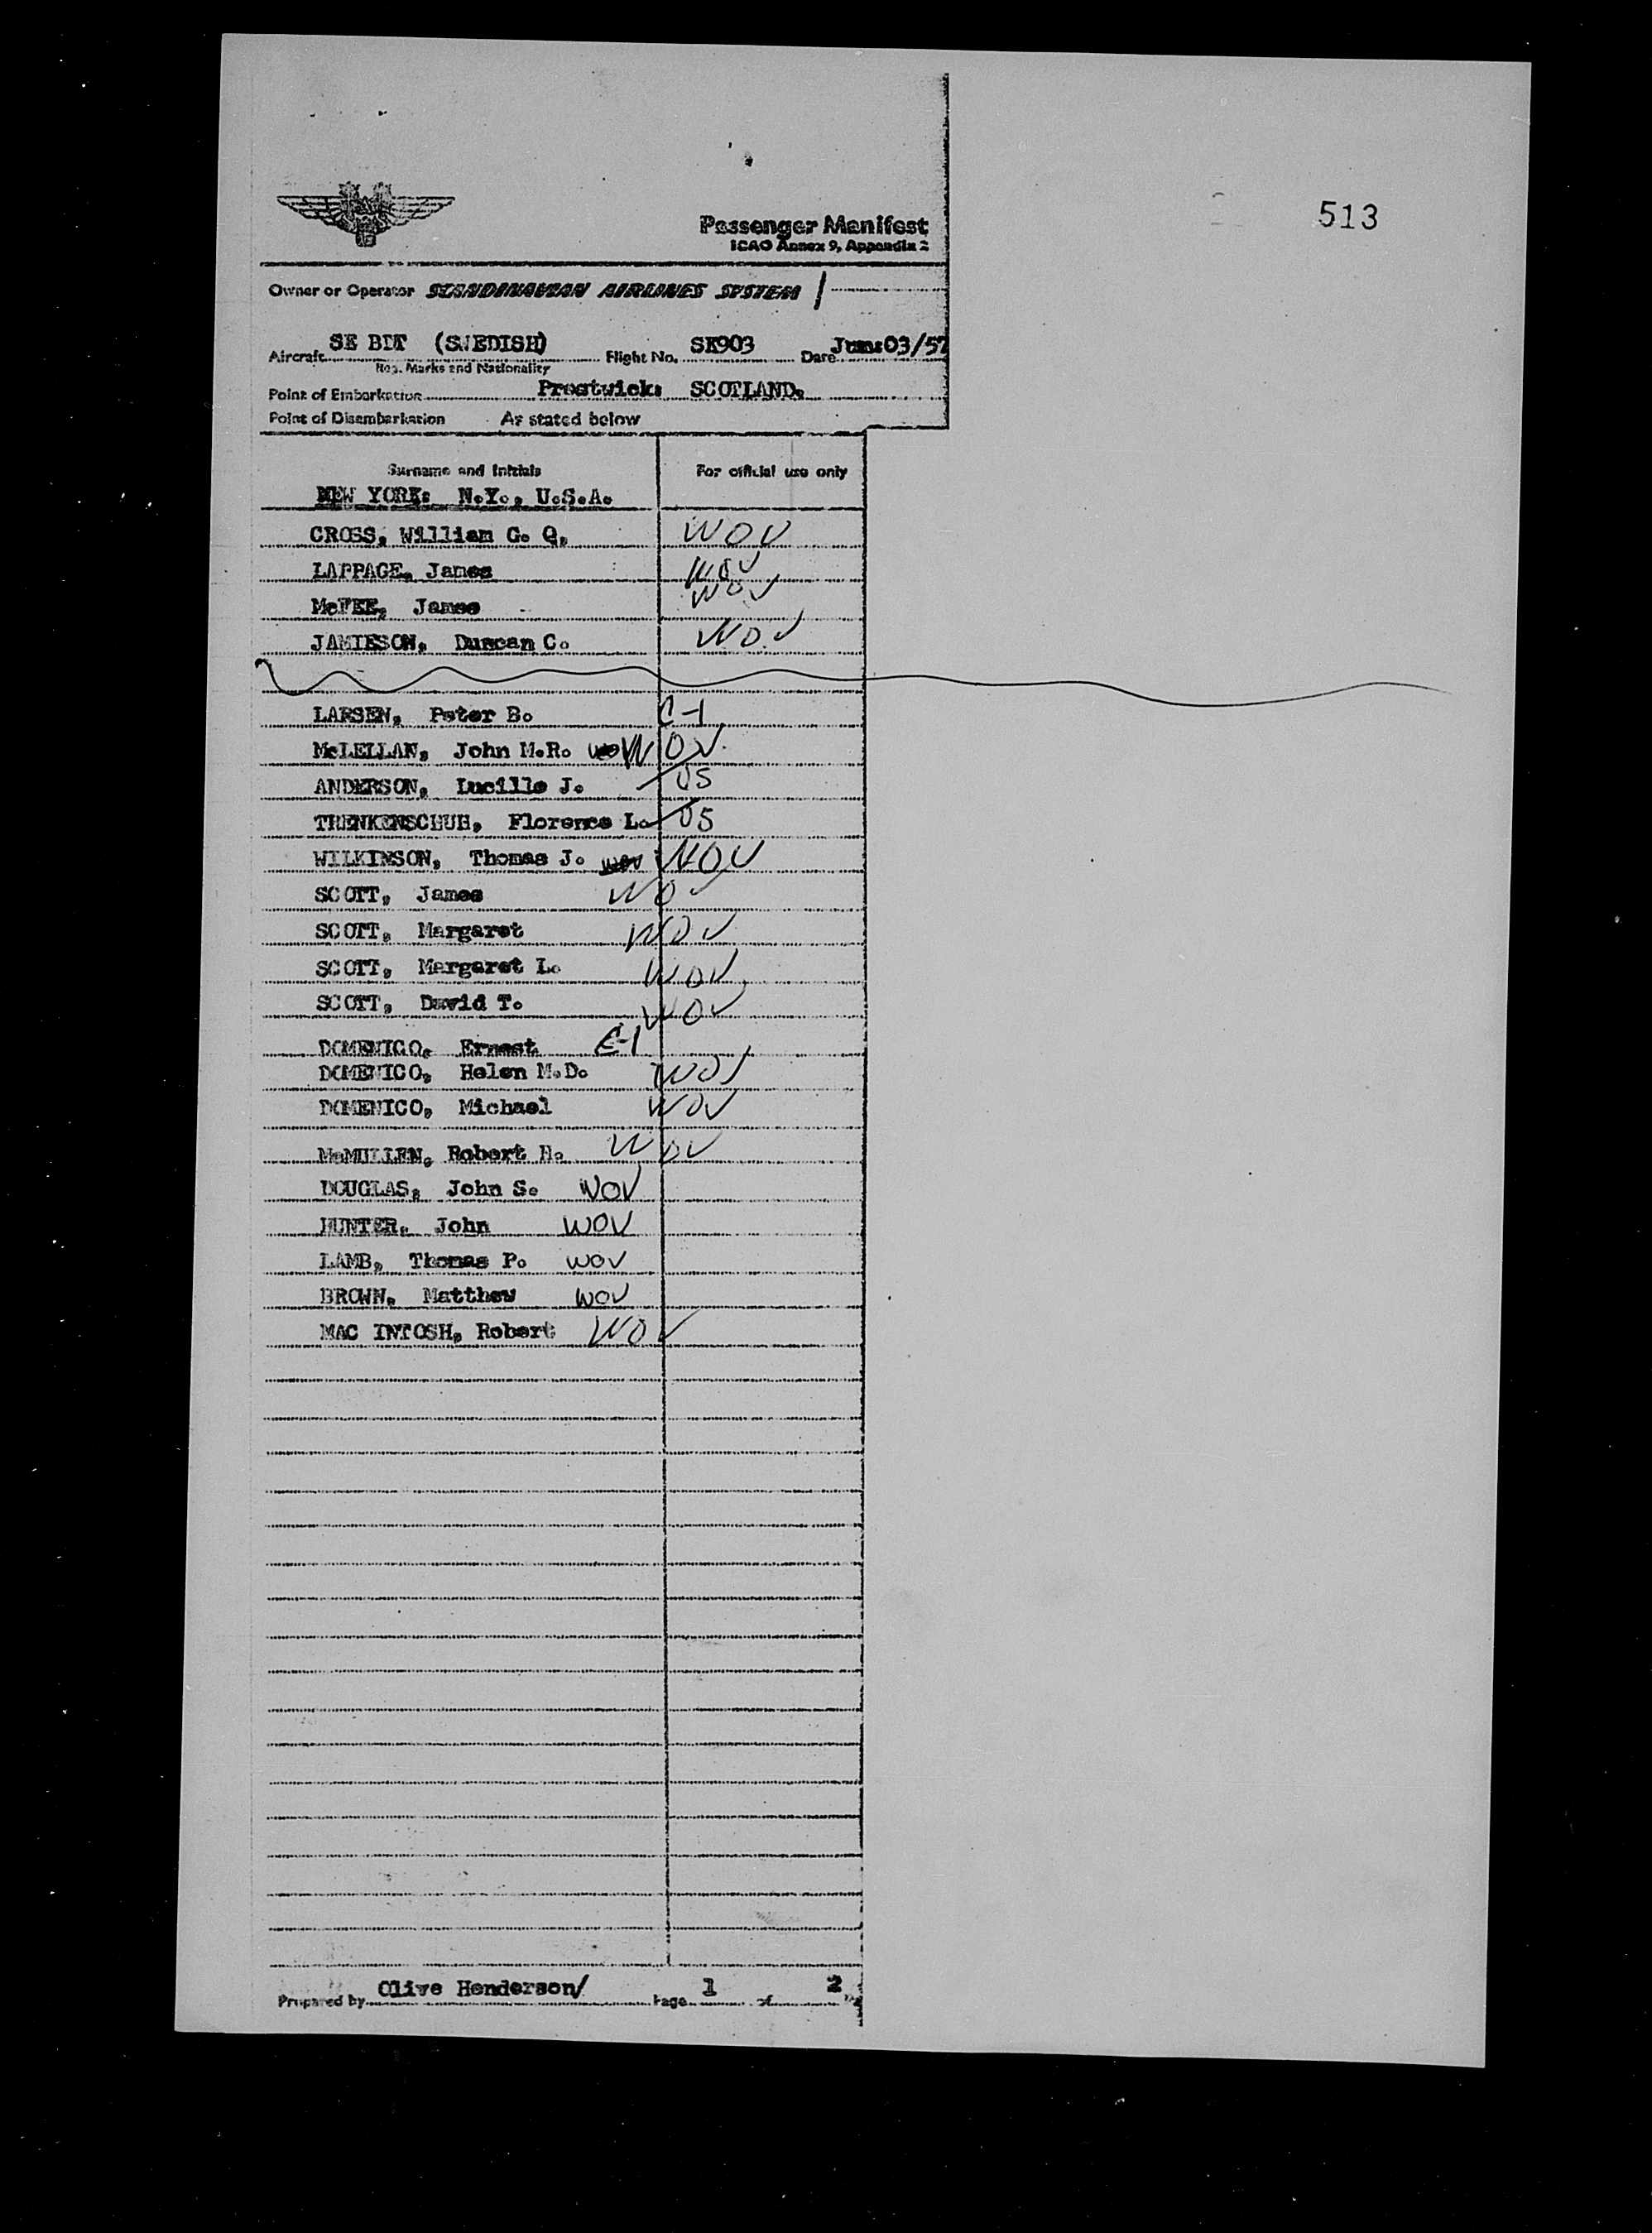 513
Passenger Manifest
ICAO Annex 9, Appendix 2
Owner or Operator SCANDINAVIAN AIRLINES SYSTEM /
Aircraft SE BDT (SWEDISH) Flight No. SK903 Date June 03/57
Reg. Marks and Nationality
Point of Embarkation Prestwick: SCOTLAND.
Point of Disembarkation As stated below
Surname and Initials For official use only
NEW YORK: N.Y., U.S.A.
CROSS, William G. Q. WOV
LAPPAGE, James WOV
McFEE, James WOV
JAMIESON, Duncan C. WOV
LARSEN, Peter B. C-1
McLELLAN, John M.R. WOV
ANDERSON, Lucille J. US
TRENKENSCHUH, Florence L. US
WILKINSON, Thomas J. WOV WOV
SCOTT, James WOV
SCOTT, Margaret WOV
SCOTT, Margaret L. WOV
SCOTT, David T. WOV
DOMENICO, Ernest C-1
DOMENICO, Helen M.D. WOV
DOMENICO, Michael WOV
McMULLEN, Robert H. WOV
DOUGLAS, John S. WOV
HUNTER, John WOV
LAMB, Thomas P. WOV
BROWN, Matthew WOV
MAC INTOSH, Robert WOV
Prepared by Olive Henderson/ Page 1 of 2